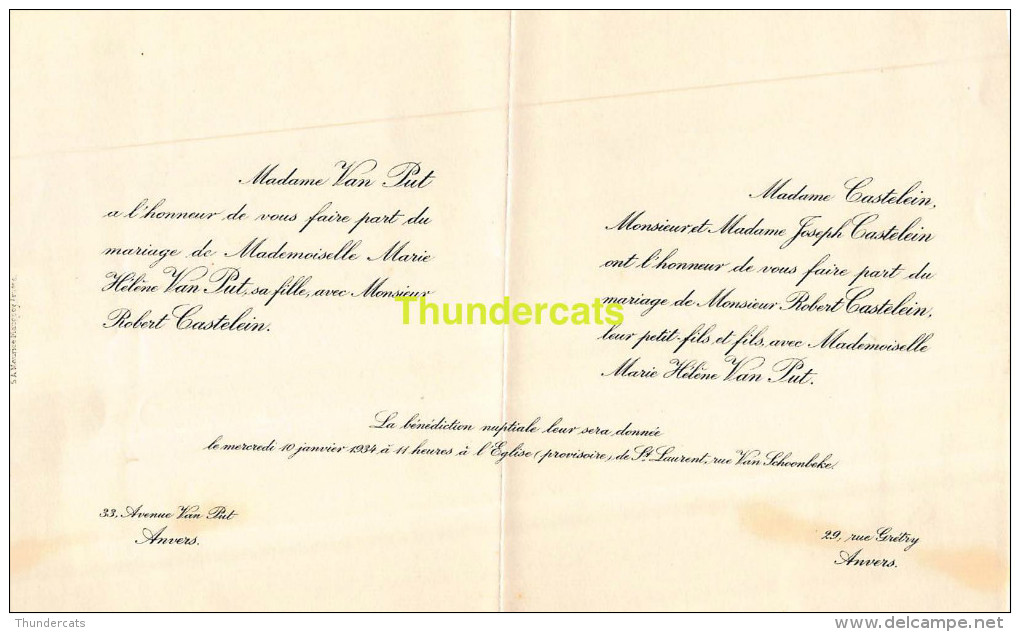 Madame Van Put
a l'honneur de vous faire part du
mariage de Mademoiselle Marie
Hélène Van Put, sa fille, avec Monsieur
Robert Castelein.
Madame Castelein,
Monsieur et Madame Joseph Castelein
ont l'honneur de vous faire part du
mariage de Monsieur Robert Castelein,
leur petit-fils et fils, avec Mademoiselle
Marie Hélène Van Put.
Thundercats
La bénédiction nuptiale leur sera donnée
le mercredi 10 janvier 1934 à 11 heures à l'Eglise (provisoire) de St Laurent, rue Van Schoonbeke.
33, Avenue Van Put
Anvers.
29, rue Grétry
Anvers.
Thundercats
delcampe.net